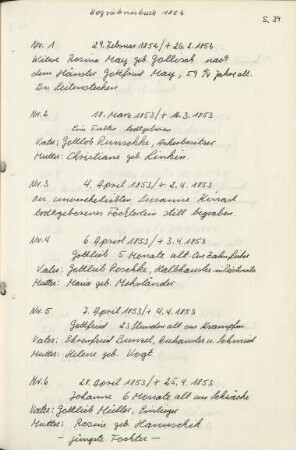 Begräbnisbuch 1854
S. 39
Nr. 1 29. Februar 1854/+ 26. 2. 1854
Witwe Rosina May geb. Gallasch nach
dem Häusler Gottfried May, 59 ¾ Jahre alt.
An Seitenstechen
Nr. 2 18. März 1853/+ 16. 3. 1853
Ein Tochter todtgeboren
Vater: Gottlob Runschke, Ackerbesitzer
Mutter: Christiane geb.
Nr. 3 4. April 1853/+ 2. 4. 1853
der unverehelichten Susanne
todegeborenes Töchterlein still begraben.
Nr. 4 6. April 1853/+ 3. 4. 1853
Gottlieb 5 Monate alt an Zahnfieber
Vater: Gottlieb Peschke, Halbhauer in
Mutter: Maria geb. Mehrländer
Nr. 5 7. April 1853/+ 4. 4. 1853
Gottfried 23 Stunden alt an Krampfen
Vater: Ehrenfried Bunzel, Auhausler u. Schmied
Mutter: Helene geb. Vogt
Nr. 6 28. April 1853/+ 25. 4. 1853
Johanne 6 Monate alt an Schwäche
Vater: Gottlieb Müller, Einlieger
Mutter: Rosine geb. Hanuschik
- jüngste Tochter -